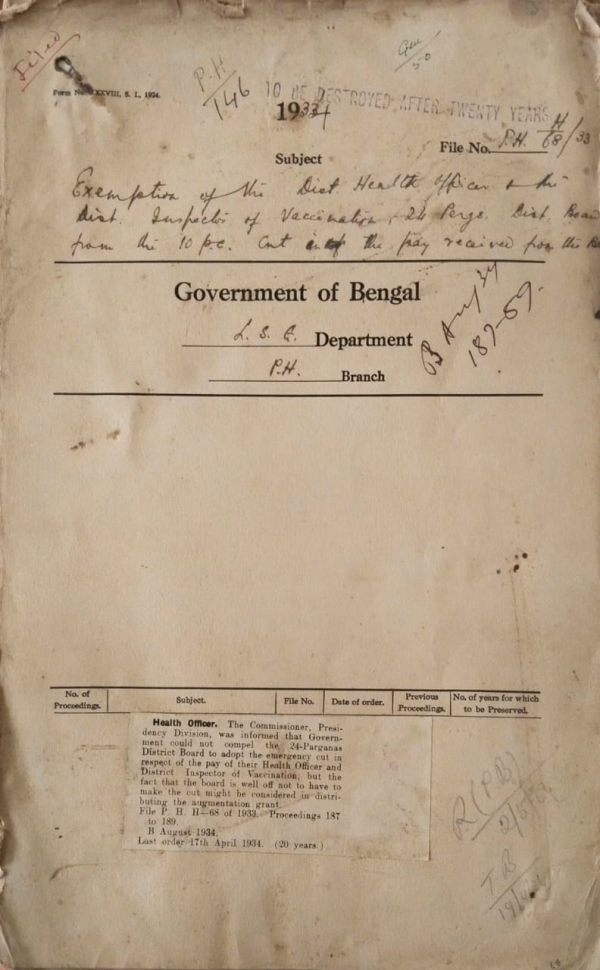 Filed
P.H
146
Gen
50
Form No. XXVIII, S. I., 1924.
TO BE DESTROYED AFTER TWENTY YEARS
1934
File No. P.H. H/68/33
Subject
Exemption of the Dist Health Officer & the
Dist. Inspector of Vaccination, 24 Pergs. Dist. Boar
from the 10 p.c. Cut of the pay received from the
Government of Bengal
L. S. G. Department
P.H. Branch
B Aug 34
187-89.
No. of Proceedings. Subject. File No. Date of order. Previous Proceedings. No. of years for which to be Preserved.
Health Officer. The Commissioner, Presi-
dency Division, was informed that Govern-
ment could not compel the 24-Parganas
District Board to adopt the emergency cut in
respect of the pay of their Health Officer and
District Inspector of Vaccination, but the
fact that the board is well off not to have to
make the cut might be considered in distri-
buting the augmentation grant.
File P. H. H—68 of 1933. Proceedings 187
to 189.
B August 1934.
Last order 17th April 1934. (20 years.)